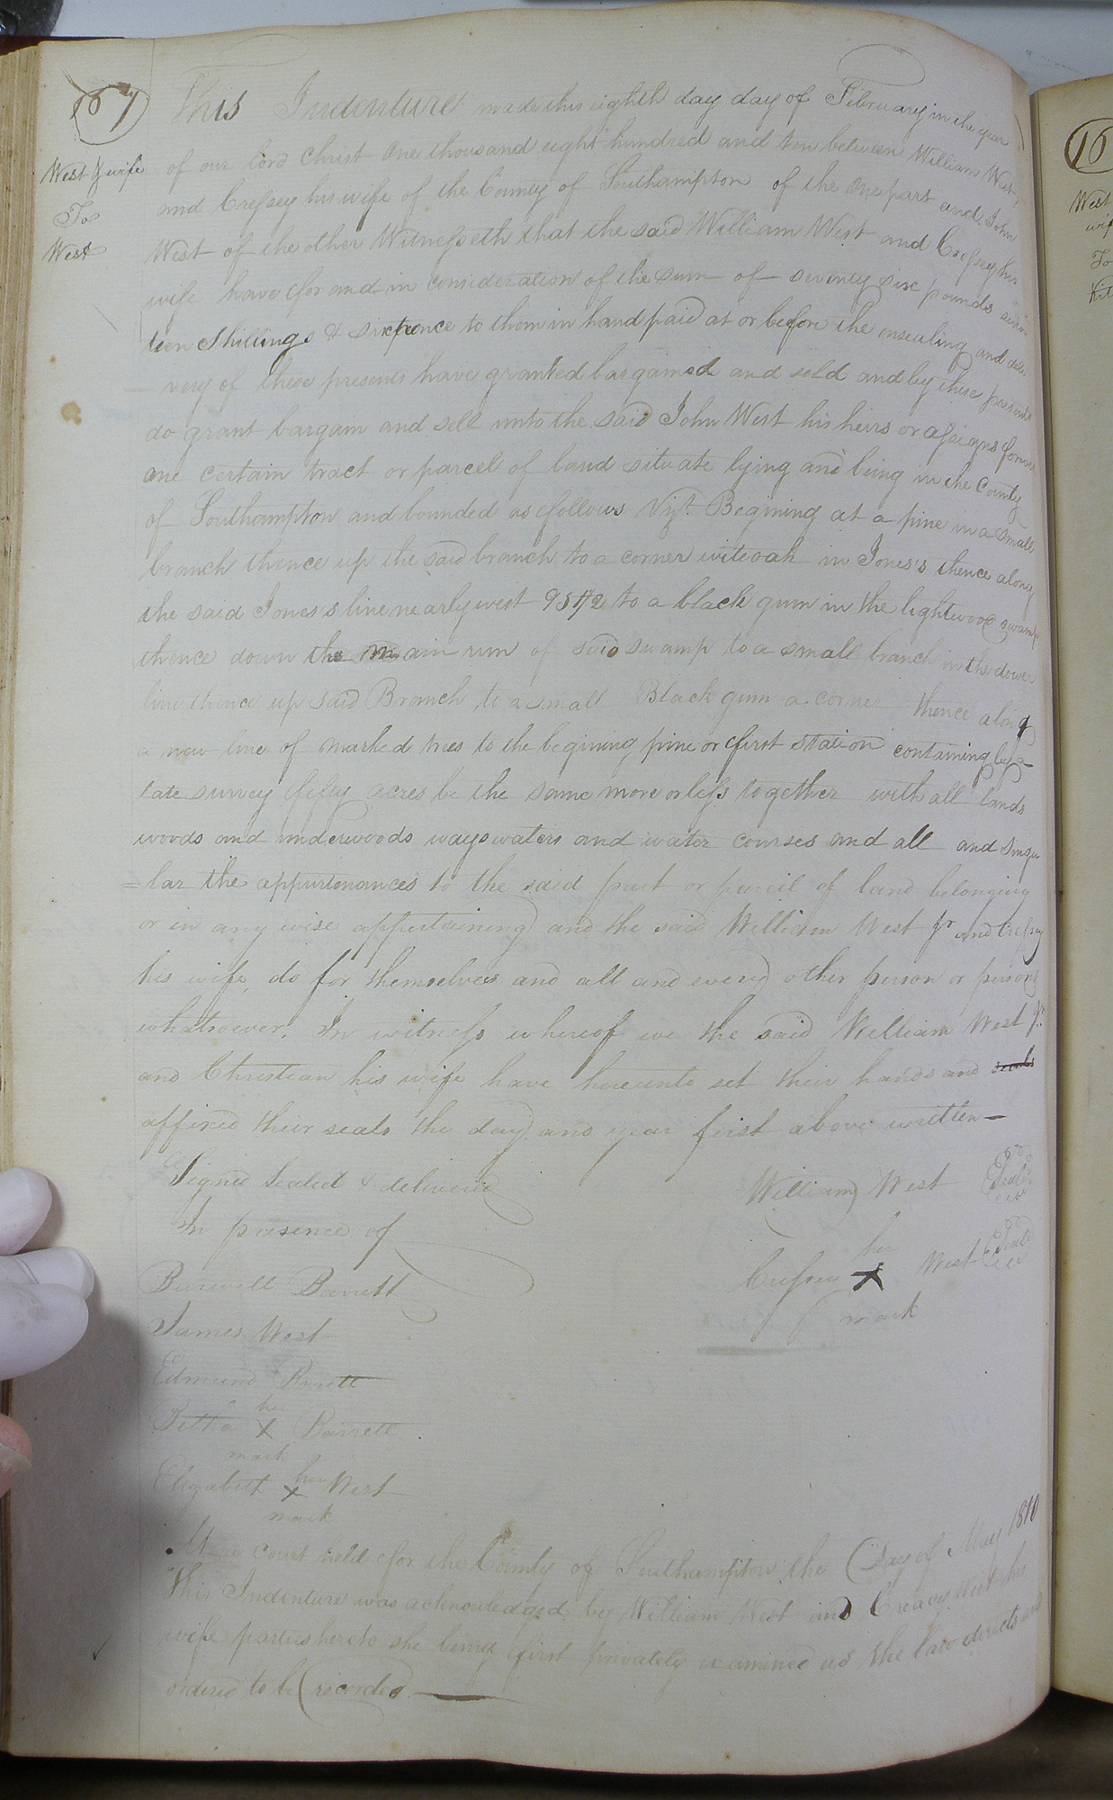 167
West & wife
To
West
This Indenture made this eighth day day of February in the year
of our lord Christ One thousand eight hundred and ten between William West
and Cressey his wife of the County of Southampton of the one part and John
West of the other Witnesseth that the said William West and Cressey his
wife have for and in consideration of the sum of seventy six pounds seven
teen Shillings & sixpence to them in hand paid at or before the ensealing and deli
very of these presents have granted bargained and sold and by these presents
do grant bargain and sell unto the said John West his heirs or assigns forever
one certain tract or parcel of land situate lying and being in the County
of Southampton and bounded as follows Vizt. Begining at a pine in a small
branch thence up the said branch to a corner witeoak in Jones's thence along
the said Jones's line nearly west to a black gum in the lightwood swamp
thence down the main run of said swamp to a small branch in the
line thence up said Branch to a small Black gum a corner thence along
a new line of marked trees to the begining pine or first station containing by a
late survey fifty acres be the same more or less together with all lands
woods and underwoods ways waters and water courses and all and singu
=lar the appurtenances to the said part or parcil of land belonging
or in any wise appertaining and the said William West Jr and Cressey
his wife, do for themselves and all and every other person or persons
whatsoever. In witness whereof we the said William West Jr.
and Christian his wife have hereunto set their hands and seals
affixed their seals the day and year first above written
Signed Sealed & delivered
In presence of
William West Seal
Cressey her X mark West Seal
Burwell Barrett
James West
Edmund Barrett
her X mark Barrett
Elizabeth her X mark West
At a court held for the County of Southampton the Day of May 1810
This Indenture was acknowledged by William West and Creacy West his
wife parties hereto she being first privately examined as the law directs and
ordered to be recorded
West
To